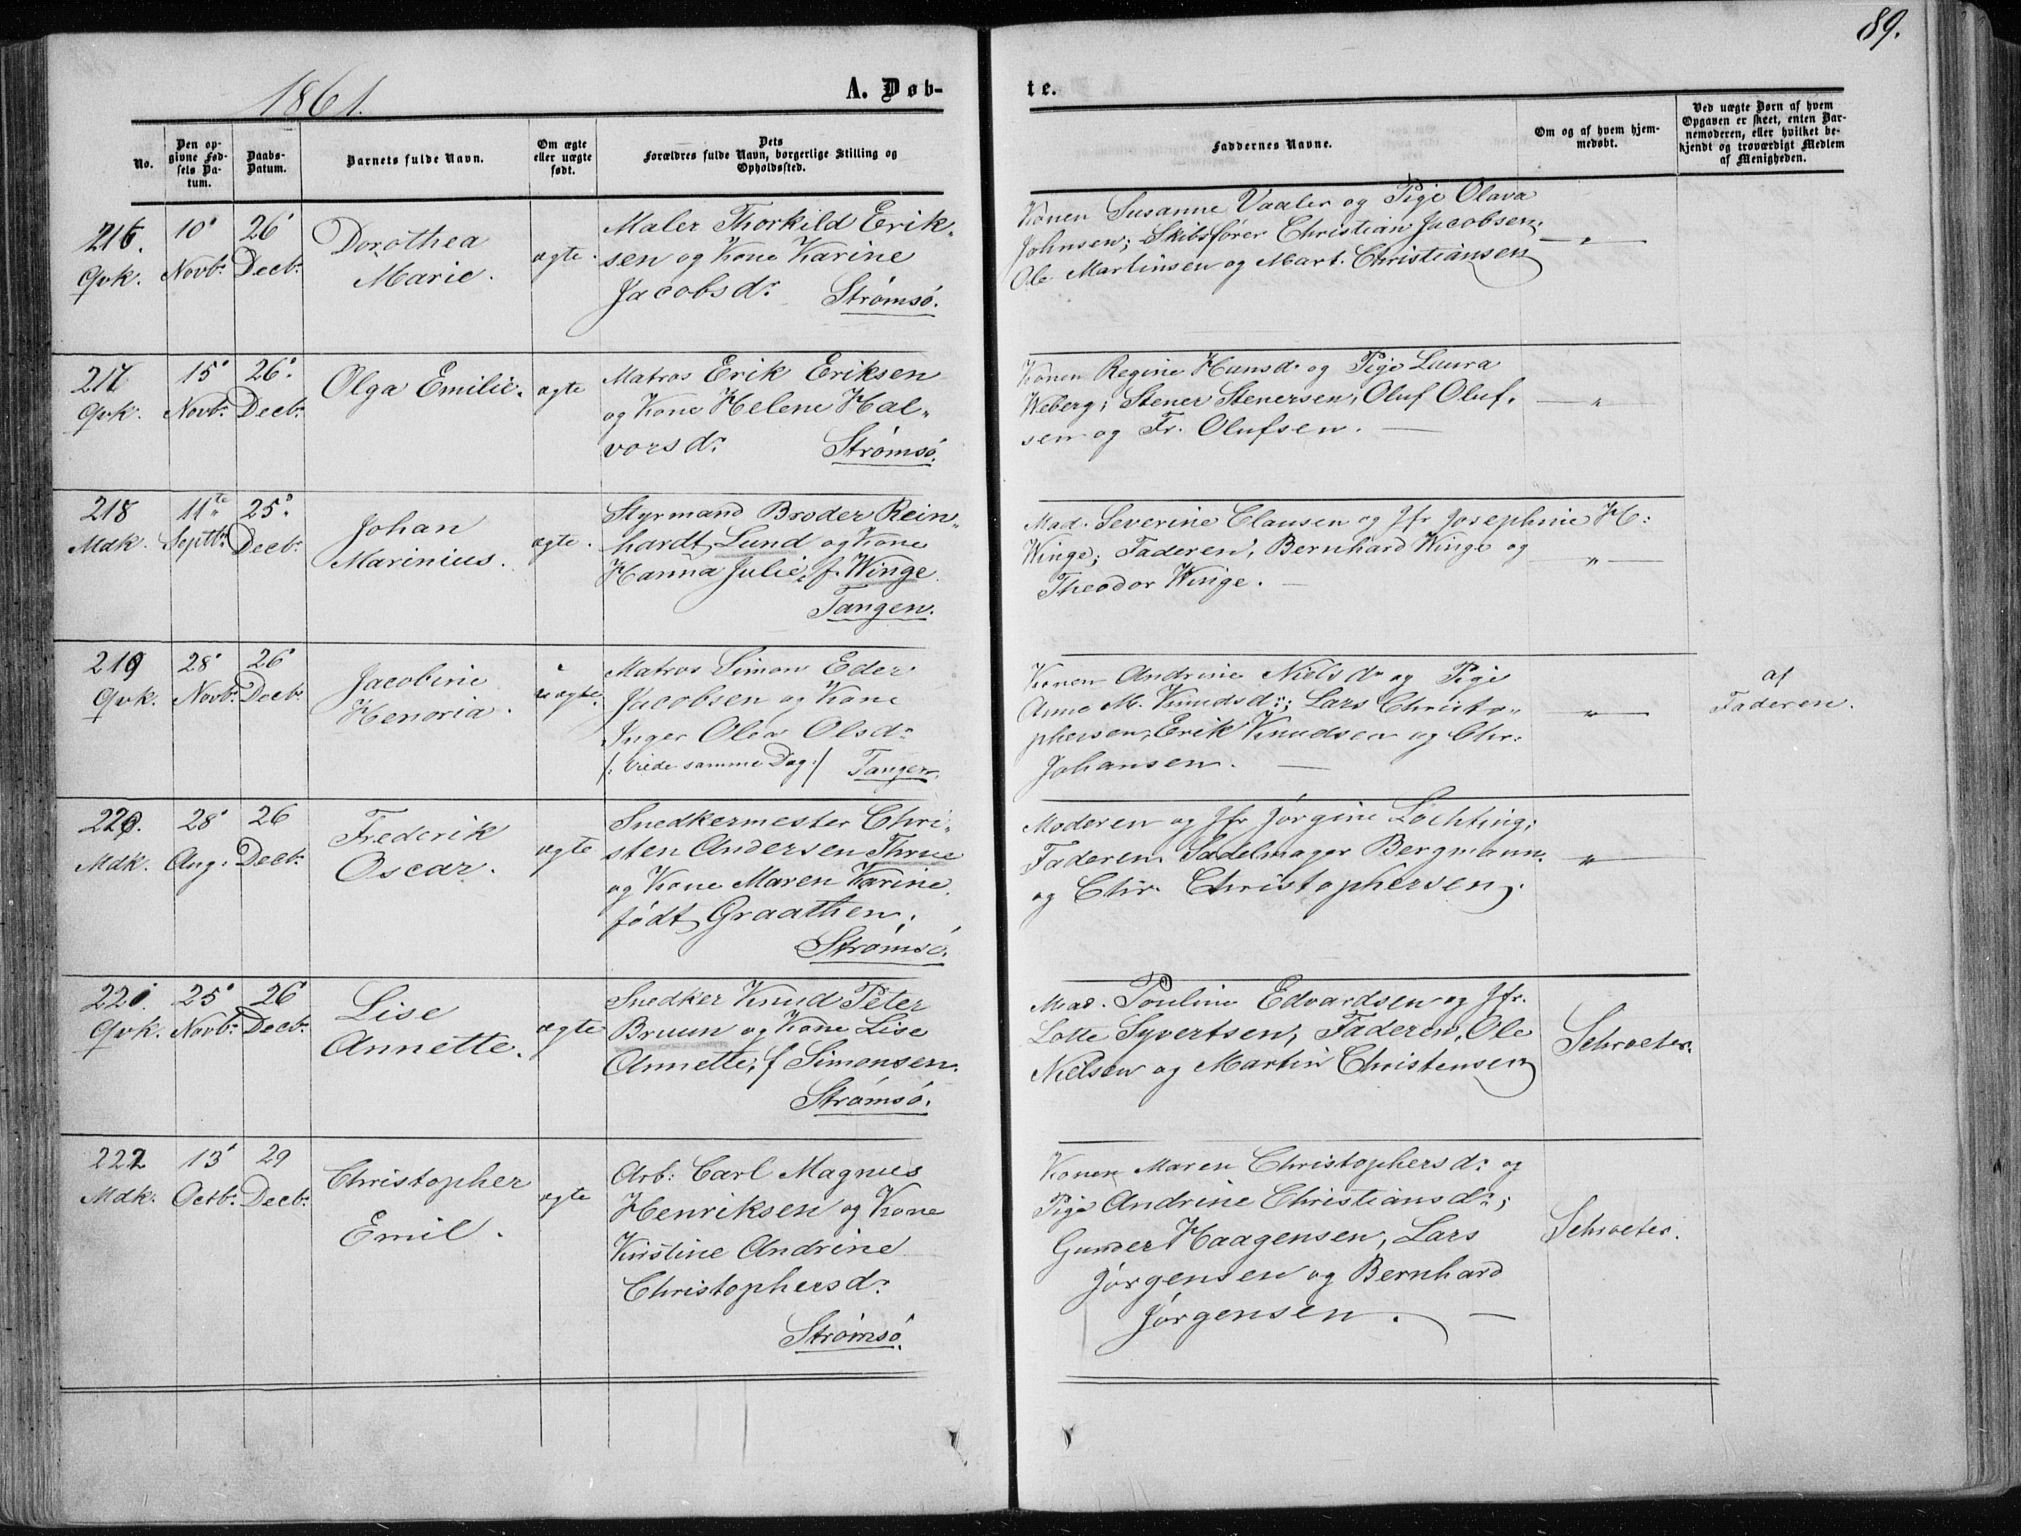 89.
1861.
A. Døb-
te.
No.
Den op-
givne Fød-
sels Da-
tum.
Daabs-
Datum.
Barnets fulde Navn.
Om ægte
eller uægte
født.
Dets
Forældres fulde Navn, borgerlige Stilling og
Opholdssted.
Faddernes Navne.
Om og af hvem hjem-
medøbt.
Ved uægte Børn af hvem
Opgaven er skeet, enten Bar-
nemoderen, eller hvilket be-
kjendt og troværdigt Medlem
af Menigheden.
216.
Qvk.
10
Novbr
26
Decbr
Dorothea
Marie.
ægte.
Maler Thorkild Erik-
sen og Kone Karine
Jacobsdr
Strømsø.
Konen Susanne Vaaler og Pige Olava
Johnsen; Skibsfører Christian Jacobsen,
Ole Martinsen og Mart. Christiansen
— " —
217
Qvk.
15
Novbr
26
Decbr
Olga Emilie.
ægte
Matros Erik Eriksen
og Kone Helene Hal-
vorsdr
Strømsø.
Konen Regine Hansdr og Pige Laura
Weberg; Stener Stenersen, Oluf Oluf-
sen og Fr. Olufsen. —
— "
218
Mdk.
11te
Septbr
25
Decbr
Johan
Marinius.
ægte.
Styrmand Broder Rein-
hardt Lund og Kone
Hanna Julie, f. Winge
Tangen.
Mad. Severine Clausen og Jfr Josephine H:
Winge; Faderen, Bernhard Winge og
Theodor Winge. —
— " —
219
Qvk.
28
Novbr
26
Decbr
Jacobine
Henoria.
uægte.
Matros Simon Eder
Jacobsen og Kone
Inger Olea Olsdr
/: viede samme Dag :/ Tangen.
Konen Andrine Nielsdr og Pige
Anne M. Knudsdr; Lars Christo-
phersen, Erik Knudsen og Chr.
Johansen. —
— " —
af
Faderen.
220.
Mdk.
28
Aug:
26
Decbr
Frederik
Oscar.
ægte
Snedkermester Chri-
sten Andersen Thrue
og Kone Maren Karine
født Graathen.
Strømsø.
Moderen og Jfr Jørgine Lochting;
Faderen, Sadelmager Bergmann
og Chr. Christophersen.
— " —
221
Qvk.
25
Novbr
26
Decbr
Lise
Annette.
ægte
Snedker Knud Peter
Bruun og Kone Lise
Annette, f Simonsen.
Strømsø.
Mad. Pouline Edvardsen og Jfr.
Lotte Syvertsen; Faderen, Ole
Nielsen og Martin Christensen
Schroeter.
222
Mdk.
13
Octbr
29
Decbr
Christopher
Emil.
ægte
Arb: Carl Magnus
Henriksen og Kone
Kirstine Andrine
Christophersdr
Strømsø.
Konen Maren Christophersdr og
Pige Andrine Christiansdr;
Gunder Haagensen, Lars
Jørgensen og Bernhard
Jørgensen. —
Schroeter.